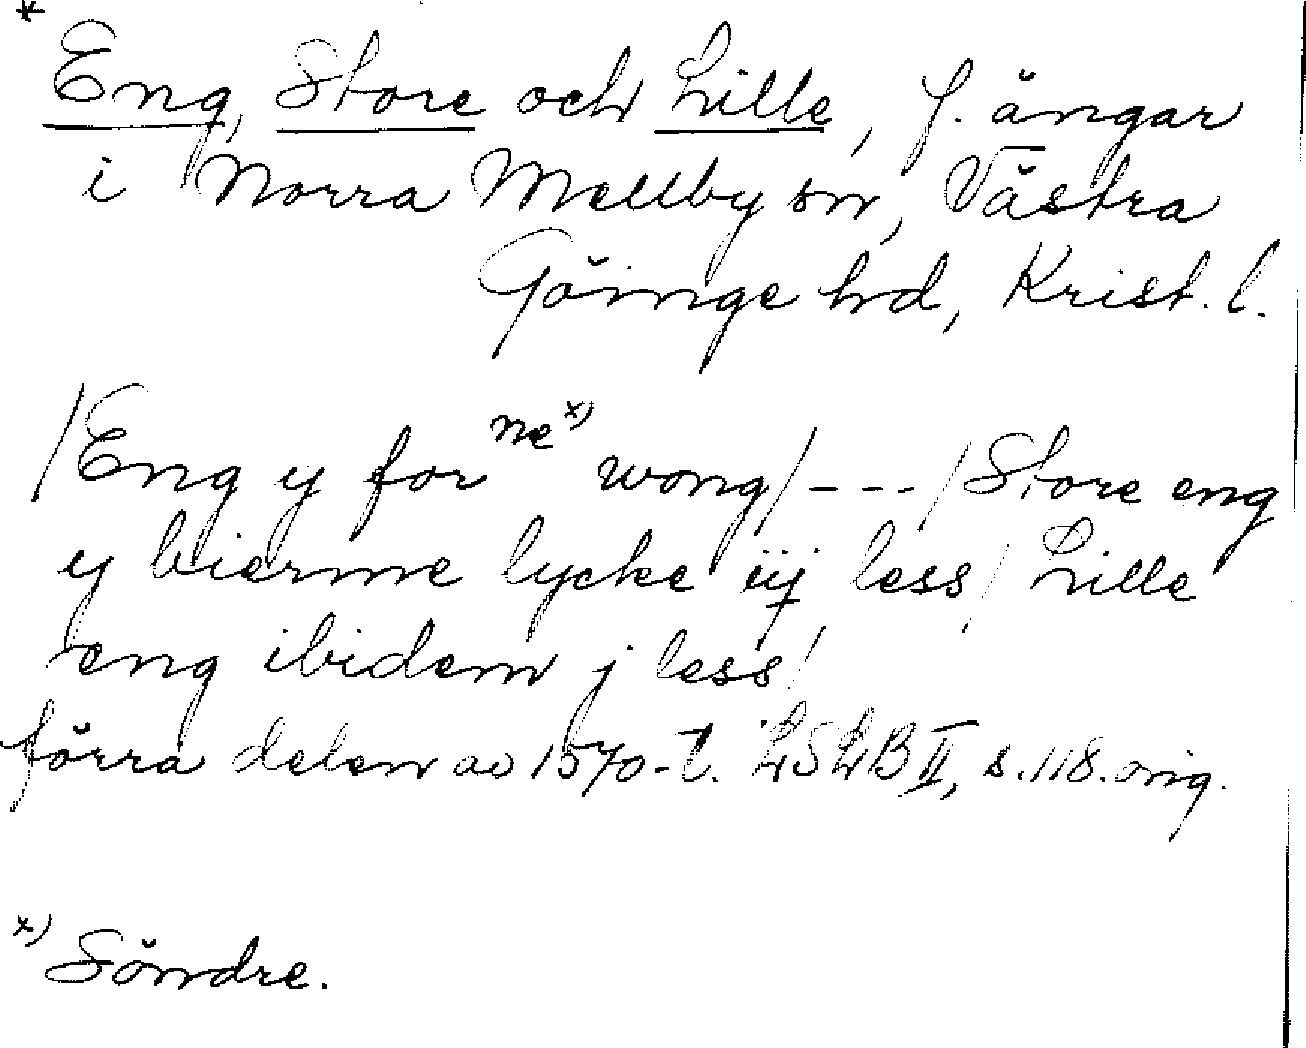 *
Eng, Store och Lille, f. ängar
i Norra Mellby sn, Västra
Göinge hd, Krist. l.
/Eng y for ne x) wong/---/Store eng
y bierme lycke iij less/ Lille
eng ibidem j less/
förra delen av 1570-t. LSLB II, s.118. orig.
x) Söndre.